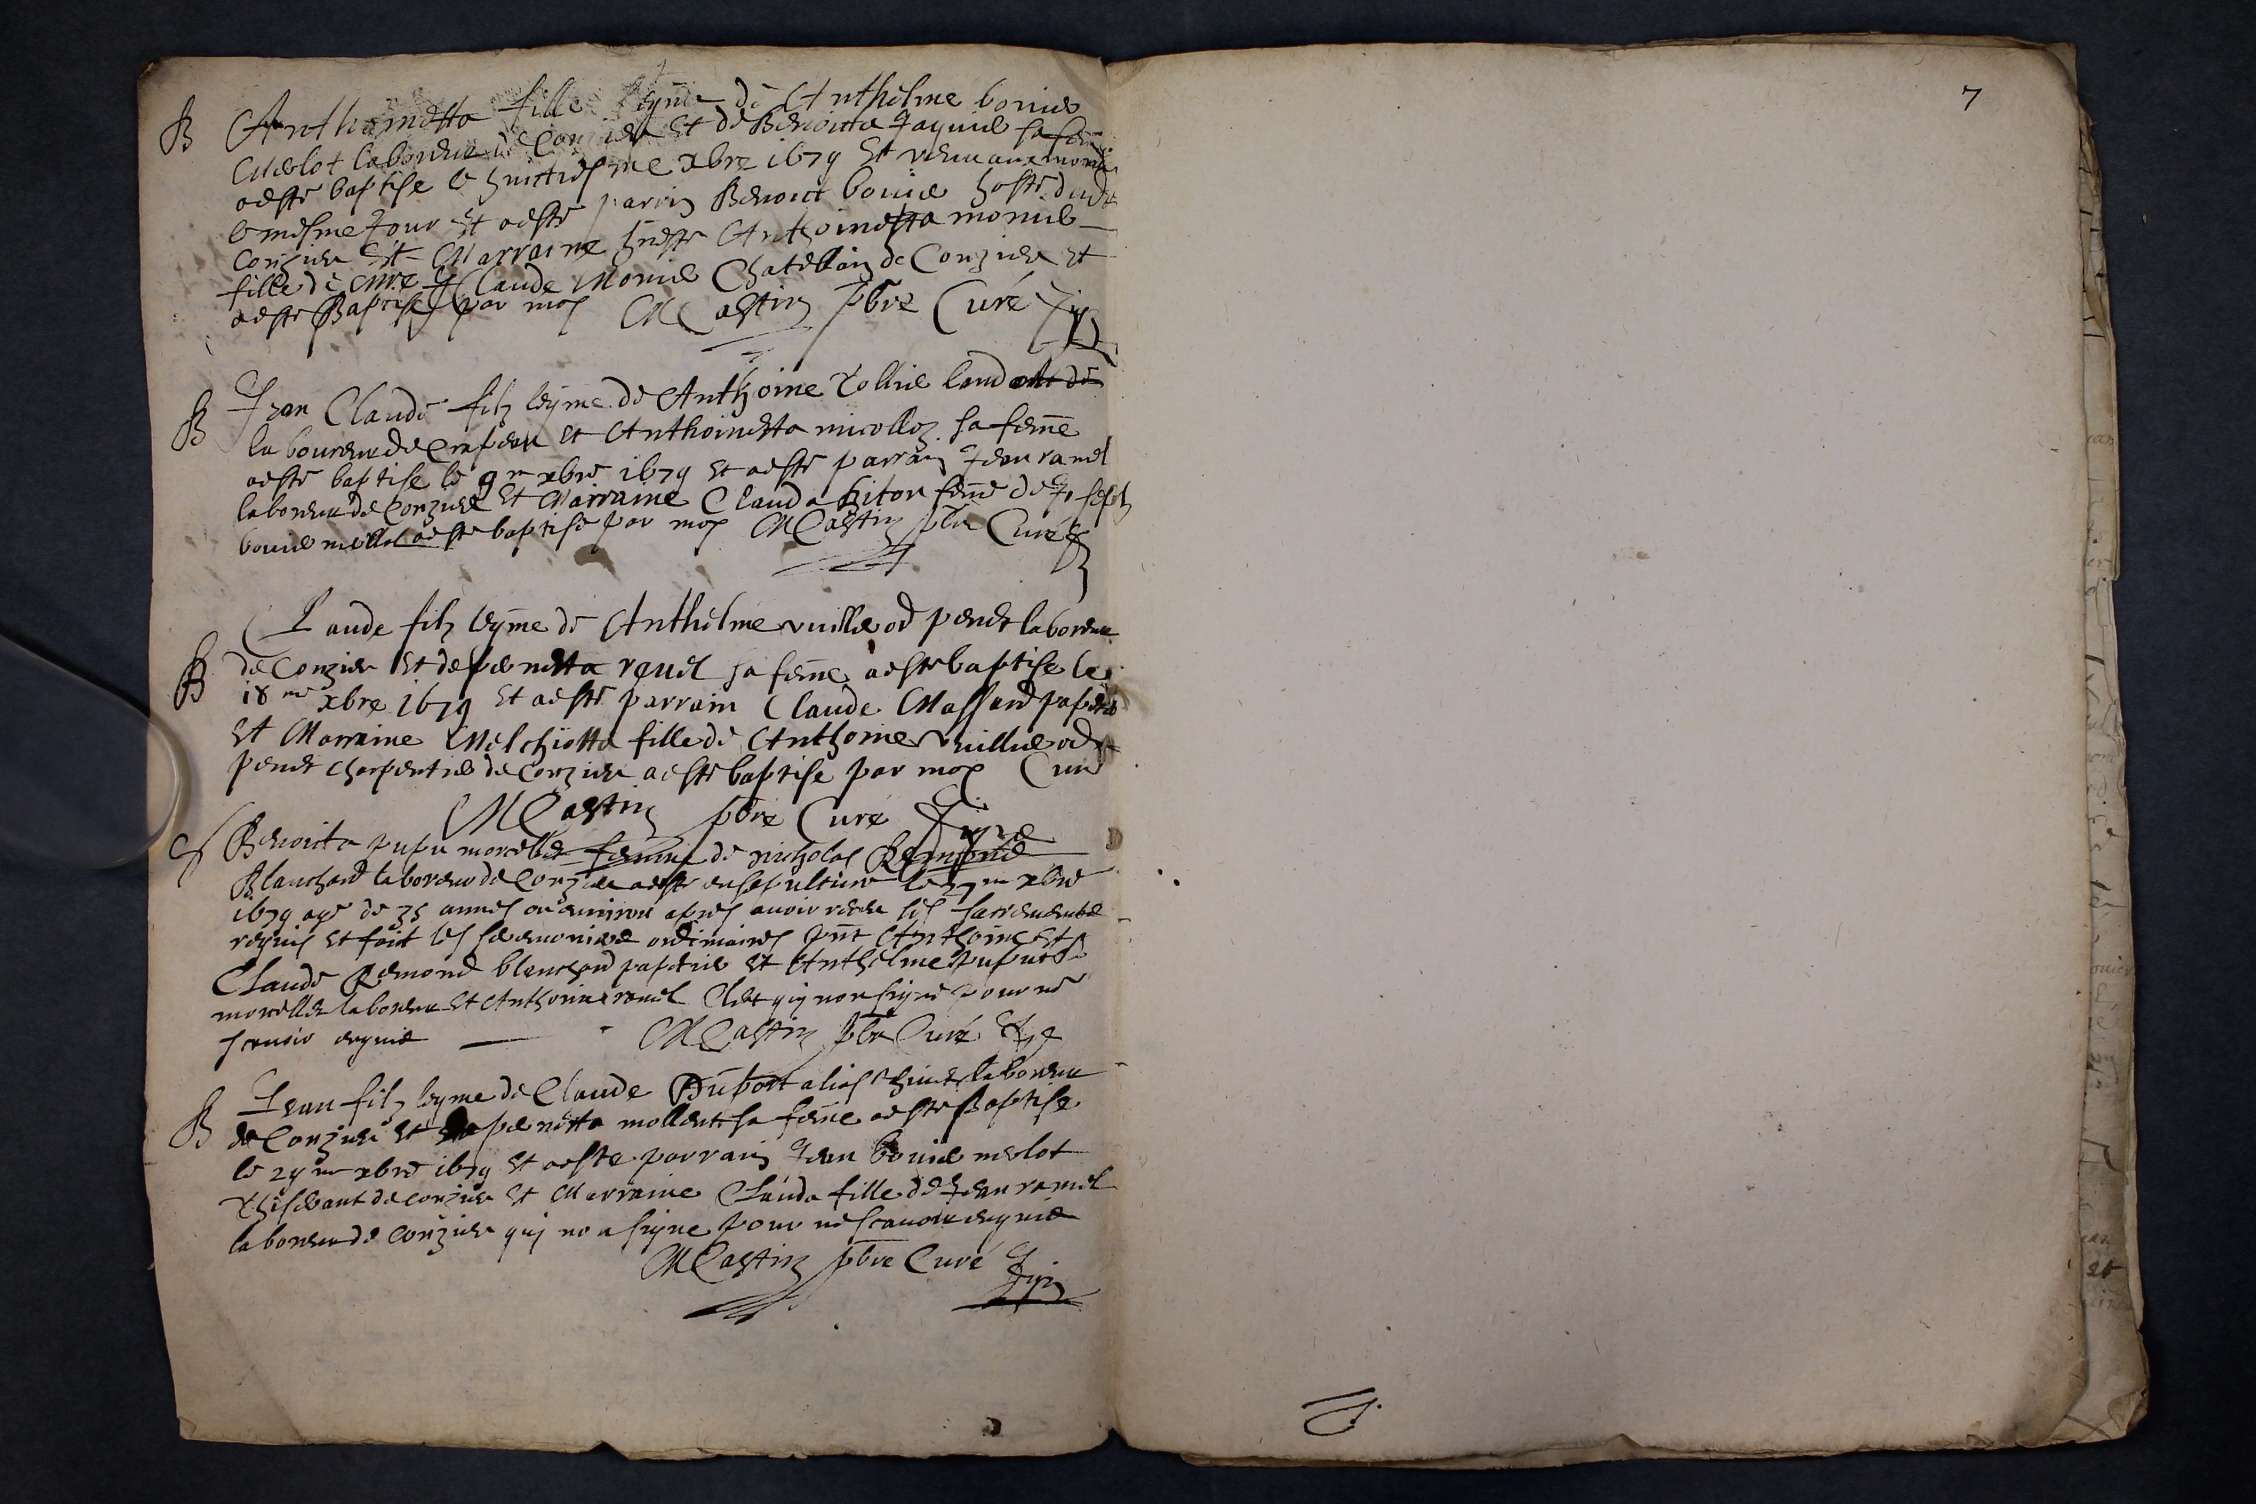 7
B Anthoinetta fille leyme de Anthelme bovier
Merlot laboureur de Conzieu et de Benoicta Jaquier sa feme
aeste baptise le huictiesme xbre 1679 et venu au monde
le mesme Jour et aeste parrin Benoict bovier hoste dudt
Conzieu et Marraine hneste Anthoinetta monier
fille de Mre Claude Monier Chatellain de Conzieu et
aeste Baptise par moy MCastin pbre Curé
B Jean Claude filz leyme de Anthoine de
laboureur de et Anthoinetta micolloz sa feme
aeste baptise le 9me xbre 1679 et aeste parrain Jean ravel
laboreur de Conzieu et Marraine Clauda feme de Joseph
bovier merlot aeste baptise par moy MCastin pbre Curé
Claude filz leyme de Anthelme vuillierod penet laboreur
B de Conzieu et de pernetta revel sa feme aeste baptise le
18me xbre 1679 et aeste parrain Claude Massard papetier
et Marraine Melchiotta fille de Anthoine vuillierod
penet charpentier de Conzieu aeste baptise par moy Cure
MCastin pbre Curé
S Benoicta pupu morellet feme de nicholas Remond
Blanchard laboreur de Conzieu aeste ensepulture le 27me xbre
1679 age de 35 annes ou environ apres avoir receu les sacrements
requis et fait les ceremonies ordinaires pnt Anthoine et
Claude Remond blanchard papetier et Anthelme pupu
morellet laboreur et Anthoine ravel Clet qui non signe pour ne
scavoir enquis MCastin pbre Curé
B Jean filz leyme de Claude Dubort alias laboreur
de Conzieu et pernetta mollent sa feme aeste Baptise
le 29me xbre 1679 et aeste parrain Jean bovier merlot
de conzieu et Marraine Clauda fille de Jean ravel
laboreur de Conzieu qui non signe pour ne scavoir enquis
MCastin pbre Curé